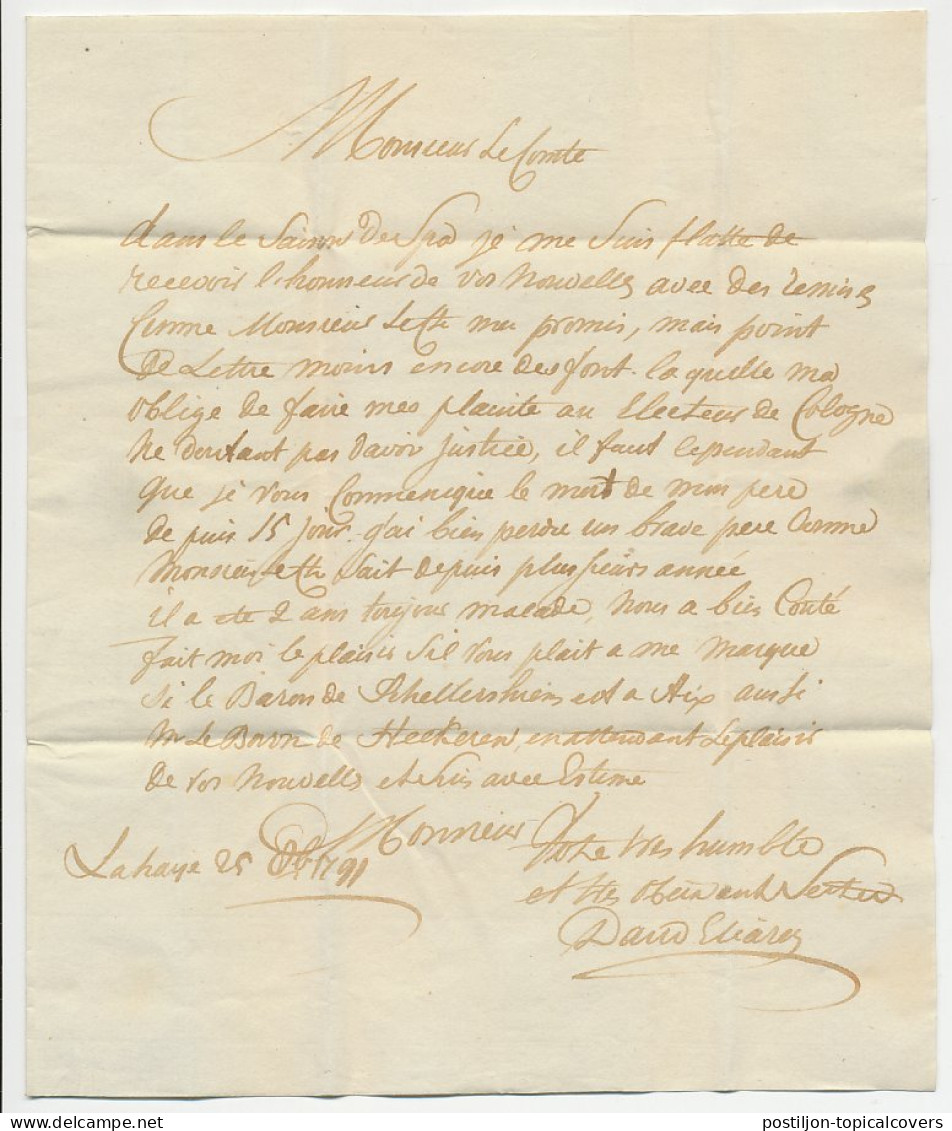 Monsieur Le Comte
dans le Saison de Spa je me Suis flatte de
recevoir l'honneur de vos Nouvelles avec des remises
Comme Monsieur Le Cte ma promis, mais point
de Lettre moins encore des font. laquelle ma
oblige de faire mes plainte au Electeur de Cologne
Ne doutant pas davoir justice, il faut cependant
que je vous Commenique le mort de mon pere
de puis 15 jour. j'ai bien perdu un brave pere Comme
Monsieur Sait depuis plusieurs année
il a ete 2 ans toujour malade, Nous a bien Couté
fait moi le plaisir Sil vous plait a me Marque
Si le Baron de est a Aix aussi
Mr Le Baron de Heckeren, enattendant Leplaisir
de vos Nouvelles et Suis avec Estime
Monsieur
Votre tres humble
Lahaye 25 1791
et tres obeissant
David
postiljon-topicalcovers